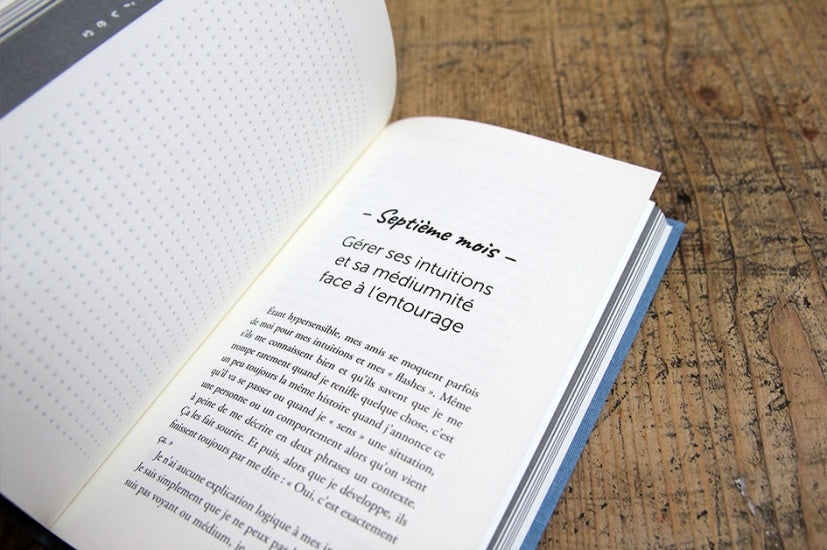 - Septième mois -
Gérer ses intuitions
et sa médiumnité
face à l'entourage
Étant hypersensible, mes amis se moquent parfois
de moi pour mes intuitions et mes « flashes ». Même
s'ils me connaissent bien et qu'ils savent que je me
trompe rarement quand je renifle quelque chose, c'est
un peu toujours la même histoire quand j'annonce ce
qu'il va se passer ou quand je « sens » une situation,
une personne ou un comportement alors qu'on vient
à peine de me décrire en deux phrases un contexte.
Ça les fait sourire. Et puis, alors que je développe, ils
finissent toujours par me dire : « Oui, c'est exactement
ça. »
Je n'ai aucune explication logique à mes
Je sais simplement que je ne peux pas
suis pas voyant ou médium, je